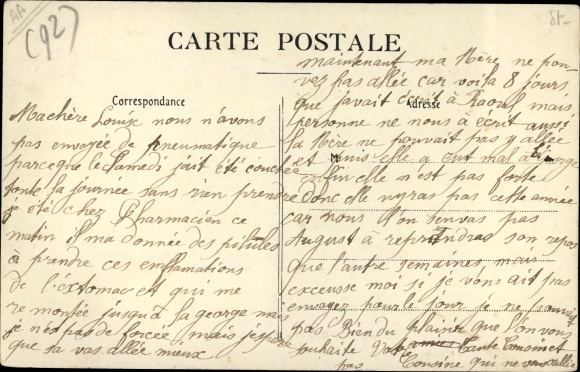 AA
(92)
CARTE POSTALE
Correspondance
Adresse
Machère Louise nous n'avons
pas envoyée de pneumatique
parceque le Samedi jait été couchée
toute la journée sans rien prendre
je été chez Pharmacien ce
matin il ma donnée des pilules
a prendre ces emflamations
de l'extomac et qui me
remontée jusqua la george mai
je nes pas de forcée mais j'espère
que sa vas allée mieux
maintenant ma Mère ne pou
vez pas allée car voisa 8 jours
que javait écrit à Raoul mais
personne ne nous à écrit aussi
la Mère ne pouvait pas y allée
et puis elle a eut mal à
enfin elle n'est pas forte
donc elle nyras pas cette année
car nous l'on seras pas
August à reprendras son repos
que l'autre semaines
excusse moi si je vous ait pas
envoyez pour le jour je ne pouvait
pas Bien du plainte que l'on vous
souhaite Tante Cousin et
pas Cousine qui ne vous oublie